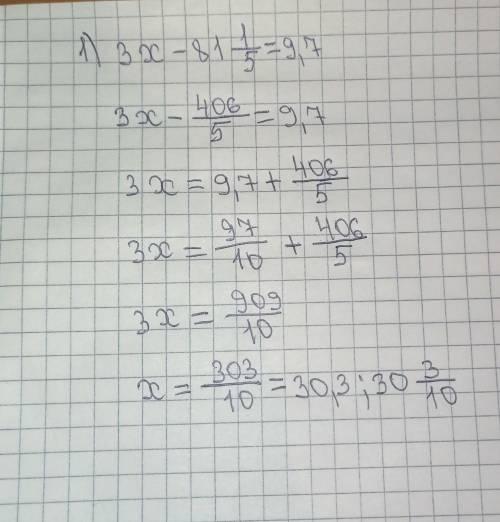 1) 3x - 81 1/5 = 9,7
3x - 406/5 = 9,7
3x = 9,7 + 406/5
3x = 97/10 + 406/5
3x = 909/10
x = 303/10 = 30,3 ; 30 3/10